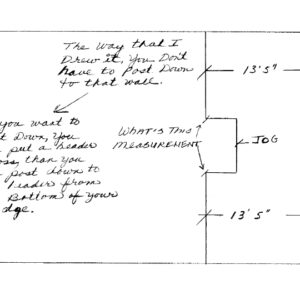 The Way that I
Drew it, You Don't
have to Post Down
to that wall.
13'5"
you want to
t Down, You
put a header
oss, than you
post down to
header from
Bottom of your
dge.
WHAT'S THIS
MEASUREMENT
JOG
13' 5"